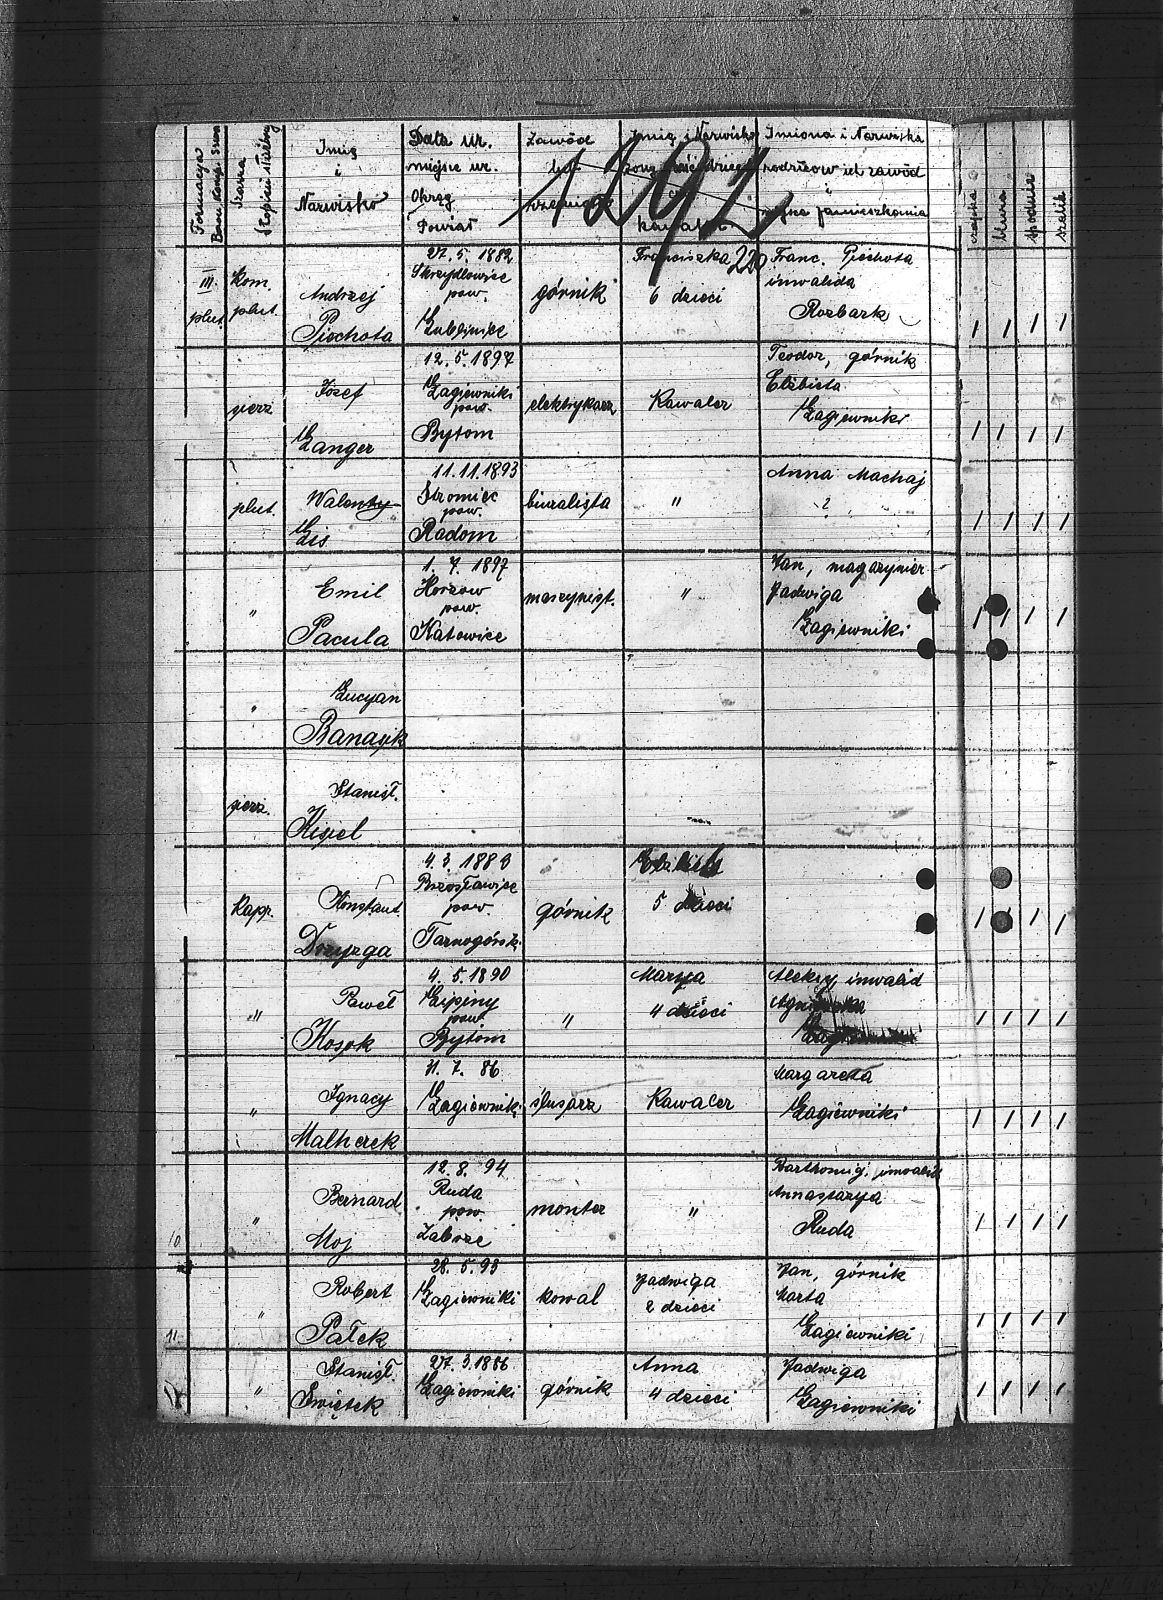 Formacya
Szarża
Stopień służbowy
Imię
i
Nazwisko
Data ur.
miejsce ur.
Okrąg
Powiat
Zawód
Imię i Nazwisko
żony
kawaler
Imiona i Nazwiska
rodziców ich zawód
i
miejsce zamieszkania
czapka
bluza
spodnie
szalik
1291
220
III.
plut.
kom.
plut.
Andrzej
Piechota
27. 5. 1882
pow.
Lubliniec
górnik
Franciszka
6 dzieci
Franc. Piechota
inwalida
Rozbark
/ / / /
Józef
Langer
12. 5. 1897
Łagiewniki
pow.
Bytom
elektrykarz
Kawaler
Teodor, górnik
Elżbieta
Łagiewniki
/ / / /
plut.
Walenty
Lis
11. 11. 1893
Stromiec
pow.
Radom
biuralista
"
Anna Machaj
?
/ / / /
"
Emil
Pacula
1. 7. 1897
Horzow
pow.
Katowice
maszynist.
"
Jan, magazynier
Jadwiga
Łagiewniki
/ / / /
"
Lucyan
Stanisł.
Kisiel
Kapr.
Konstant.
Dzyzga
4. 3. 1883
pow.
Tarnogórsk.
górnik
5 dzieci
/ / / /
"
Paweł
Kosok
4. 5. 1890
Lipiny
pow.
Bytom
"
Marya
4 dzieci
Aleksy, inwalid
/ / / /
"
Ignacy
Malherek
31. 7. 86
Łagiewniki
ślusarz
Kawaler
Margareta
Łagiewniki
/ / / /
10
"
Bernard
Moj
12. 8. 94
Ruda
pow.
Zabrze
monter
"
Bartłomiej, inwalid
Annastazya
Ruda
/ / / /
11.
"
Robert
Pałek
28. 5. 93
Łagiewniki
kowal
Jadwiga
2 dzieci
Jan, górnik
Marta
Łagiewniki
/ / / /
12
"
Stanisł.
Świętek
27. 3. 1886
Łagiewniki
górnik
Anna
4 dzieci
Jadwiga
Łagiewniki
/ / / /